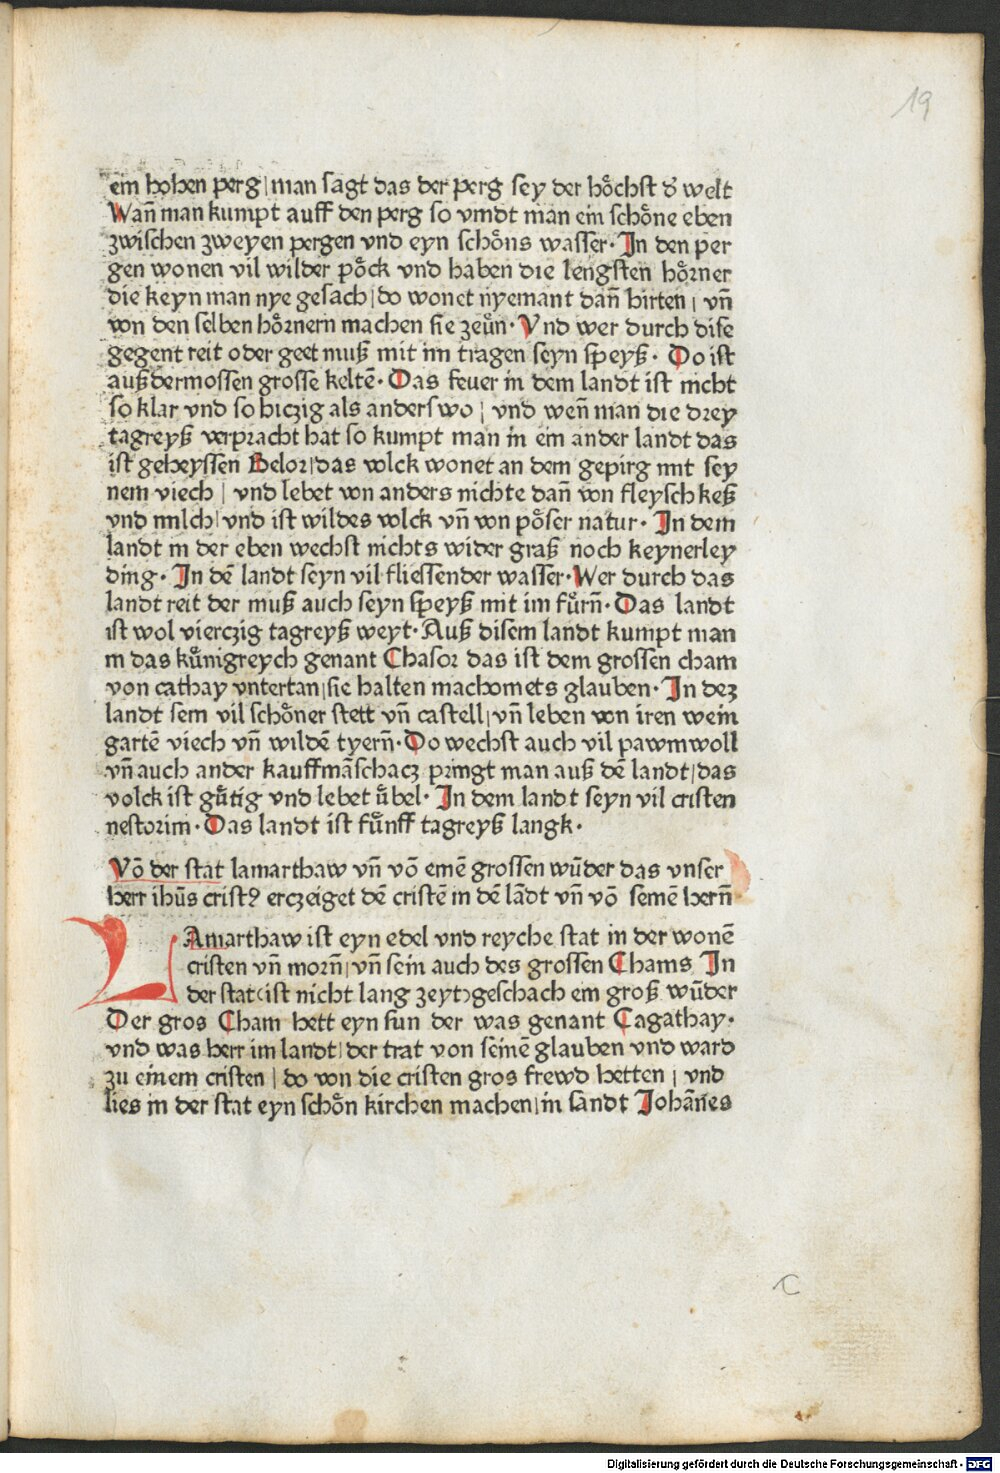 19
ein hohen perg|man sagt das der perg sey der hoͤchst d̕ welt
Wan̄ man kumpt auff den perg so vindt man ein schoͤne eben
zwischen zweyen pergen vnd eyn schoͤns wasser· In den per
gen wonen vil wilder poͤck vnd haben die lengsten hoͤrner
die keyn man nye gesach|do wonet nyemant dan̄ hirten| vn̄
von den selben hoͤrnern machen sie zeuͤn· Vnd wer durch dise
gegent reit oder geet muß mit im tragen seyn speyß· Do ist
auß dermossen grosse keltē· Das feuer in dem landt ist nicht
so klar vnd so hiczig als anderswo| vnd wen̄ man die drey
tagreyß verpracht hat so kumpt man in ein ander landt das
ist geheyssen Belor|das volck wonet an dem gepirg mit sey
nem viech| vnd lebet von anders nichte dan̄ von fleysch keß
vnd milch|vnd ist wildes volck vn̄ von poͤser natur· In dem
landt in der eben wechst nichts wider graß noch keynerley
ding· In dē landt seyn vil fliessender wasser·Wer durch das
landt reit der muß auch seyn speyß mit im fuͤrn̄·Das landt
ist wol vierczig tagreyß weyt·Auß disem landt kumpt man
in das kuͤnigreych genant Chasor das ist dem grossen cham
von cathay vntertan|sie halten machomets glauben·In dez
landt sein vil schoͤner stett vn̄ castell|vn̄ leben von iren wein
gartē viech vn̄ wildē tyern̄·Do wechst auch vil pawmwoll
vn̄ auch ander kauffmāschacz pringt man auß dē landt|das
volck ist guͤtig vnd lebet uͤbel· In dem landt seyn vil cristen
nestorim·Das landt ist fuͤnff tagreyß langk·
Vō der stat lamarthaw vn̄ vō einē grossen wūder das vnser
herr ihūs cristꝰ erczeiget dē cristē in dē lādt vn̄ vō seinē hern̄
LAmarthaw ist eyn edel vnd reyche stat in der wonē
cristen vn̄ morn̄|vn̄ sein auch des grossen Chams In
der stat(ist nicht lang zeyt)geschach ein groß wūder
Der gros Cham hett eyn sun der was genant Cagathay·
vnd was herr im landt|der trat von seinē glauben vnd ward
zu einem cristen|do von die cristen gros frewd hetten| vnd
lies in der stat eyn schoͤn kirchen machen|in sandt Johān̄es
Digitalisierung gefördert durch die Deutsche Forschungsgemeinschaft - DFG